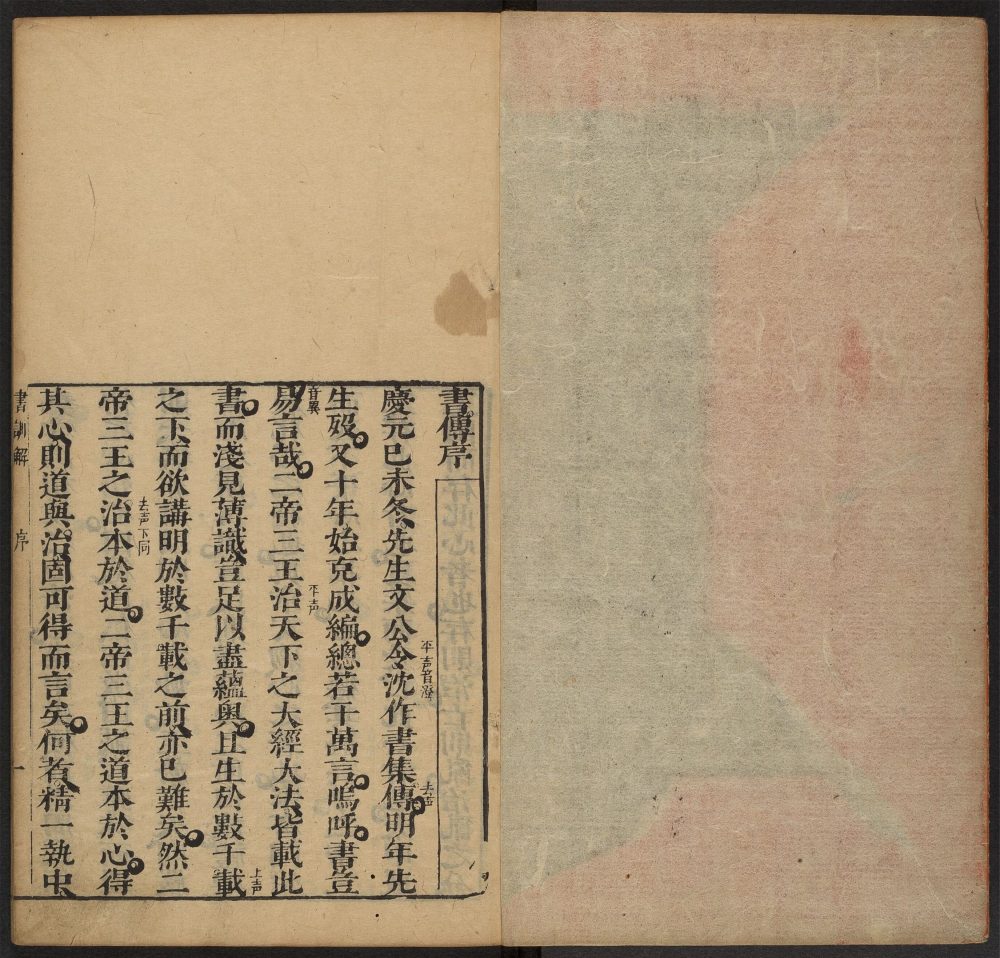 書傳序
慶元己未冬先生文公令沈作書集傳明年先
平声音澄
去声
生歿又十年始克成編總若干萬言嗚呼書豈
音異
平声
易言哉二帝三王治天下之大經大法皆載此
書而淺見薄識豈足以盡蘊奧且生於數千載
上声
之下而欲講明於數千載之前亦已難矣然二
去声下同
帝三王之治本於道二帝三王之道本於心得
其心則道與治固可得而言矣何者精一執中
書訓解
序
一